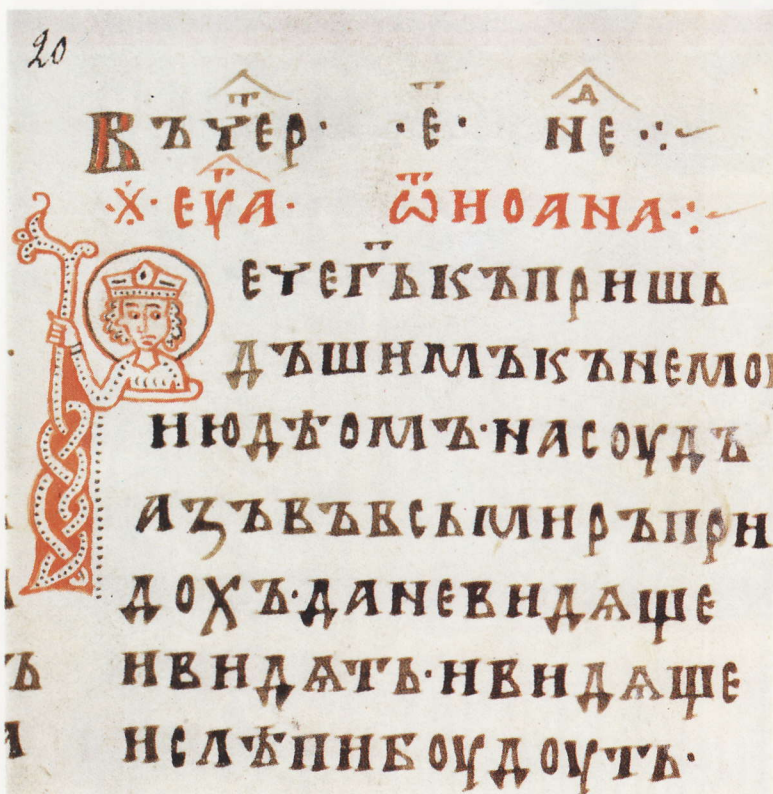 20
Въчⷮер· ·е҃· неⷣ ⁘
·х· еѵⷢа· ѿиоана ⁘
Речег҃ькъпришь
дъшимъкънемо
июдѣомъ·насоудъ
азъвъвсьмиръпри
дохъ·даневидѧще
ивидѧть·ивидѧще
ислѣпибоудоуть·